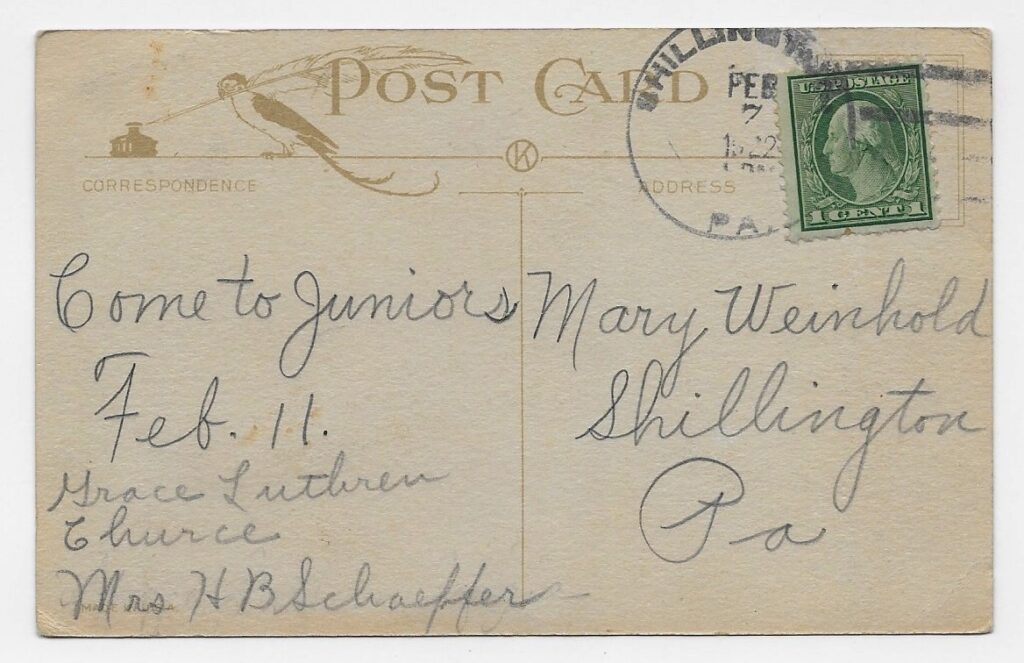 POST CARD
SHILLINGT
FEB
7
1922
PA.
U.S. POSTAGE
1 CENT 1
K
CORRESPONDENCE
ADDRESS
Come to Juniors
Feb. 11.
Grace Luthren
Churce
Mrs H B Schaeffer
MADE IN U.S.A
Mary Weinhold
Shillington
Pa